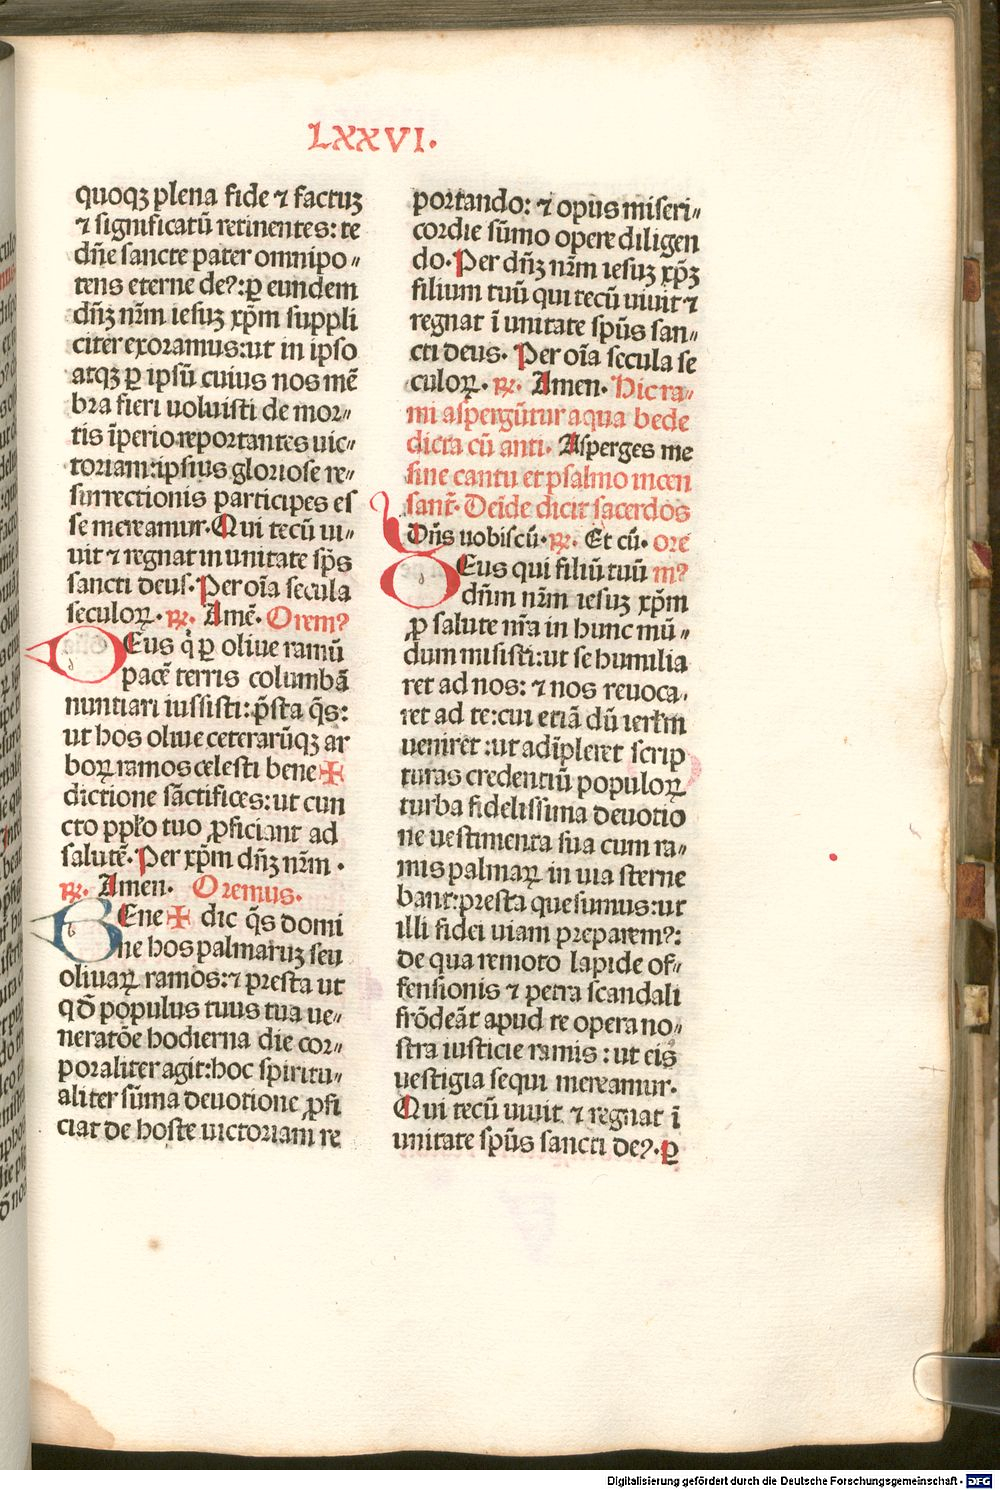 LXXVI.
quoqꝫ plena fide ⁊ factuꝫ
⁊ significatū retinentes: te
dn̄e sancte pater omnipo〃
tens eterne deꝰ: ꝑ eundem
dn̄ꝫ nr̄m iesuꝫ xp̄m suppli
citer exoramus: ut in ipso
atqꝫ ꝑ ipsū cuius nos mē
bra fieri uoluisti de mor〃
tis īperio reportantes uic〃
toriam: ipsius gloriose re〃
surrectionis participes es
se mereamur. Qui tecū ui〃
uit ⁊ regnat in unitate sp̄s
sancti deus. Per oīa secula
seculoꝝ. ꝶ. Amē. Oremꝰ
DEus q̇ ꝑ oliue ramū
pacē terris columbā
nuntiari iussisti: p̄sta q̄s:
ut hos oliue ceterarūqꝫ ar
boꝝ ramos celesti bene✠
dictione sāctifices: ut cun
cto pp̄lo tuo ꝓficiant ad
salutē. Per xp̄m dn̄ꝫ nr̄m.
ꝶ. Amen. Oremus.
BEne✠ dic q̄s domi
ne hos palmaruꝫ seu
oliuaꝝ ramos: ⁊ presta ut
qđ populus tuus tua ue〃
neratōe hodierna die cor〃
poraliter agit: hoc spiritu〃
aliter sūma deuotione ꝓfi
ciat de hoste uictoriam re
portando: ⁊ opus miseri〃
cordie sūmo opere diligen
do. Per dn̄ꝫ nr̄m iesuꝫ xp̄ꝫ
filium tuū qui tecū uiuit ⁊
regnat ī unitate sp̄us san〃
cti deus. Per oīa secula se
culoꝝ. ꝶ. Amen. Hic ra〃
mi aspergūtur aqua bede
dicta cū anti. Asperges me
sine cantu et psalmo incen
sant̄. Deīde dicit sacerdos
Dn̄s uobiscū. ꝶ. Et cū. ore
DEus qui filiū tuū mꝰ
dn̄m nr̄m iesuꝫ xp̄m
ꝓ salute nr̄a in hunc mū〃
dum misisti: ut se humilia
ret ad nos: ⁊ nos reuoca〃
ret ad te: cui etiā dū ierl̄m
ueniret: ut adīpleret scrip
turas credentiū populoꝝ
turba fidelissima deuotio
ne uestimenta sua cum ra〃
mis palmaꝝ in uia sterne
bant: presta quesumus: ut
illi fidei uiam preparemꝰ:
de qua remoto lapide of〃
fensionis ⁊ petra scandali
frōdeāt apud te opera no〃
stra iusticie ramis: ut eis
uestigia sequi mereamur.
Qui tecū uiuit ⁊ regnat ī
unitate sp̄us sancti deꝰ. ꝑ
Digitalisierung gefördert durch die Deutsche Forschungsgemeinschaft - DFG